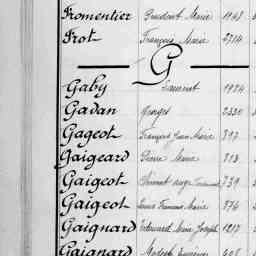 Fromentier Prudent Marie
Frot François Marie 2714
G
Gaby Laurent 1924
Gadan Georges 2330
Gageot François Jean Marie 397
Gaigeard Pierre Marie 313
Gaigeot 739
Gaigeot Louis François Marie 376
Gaignard Edouard Marie Joseph 1217
Gaignard 408